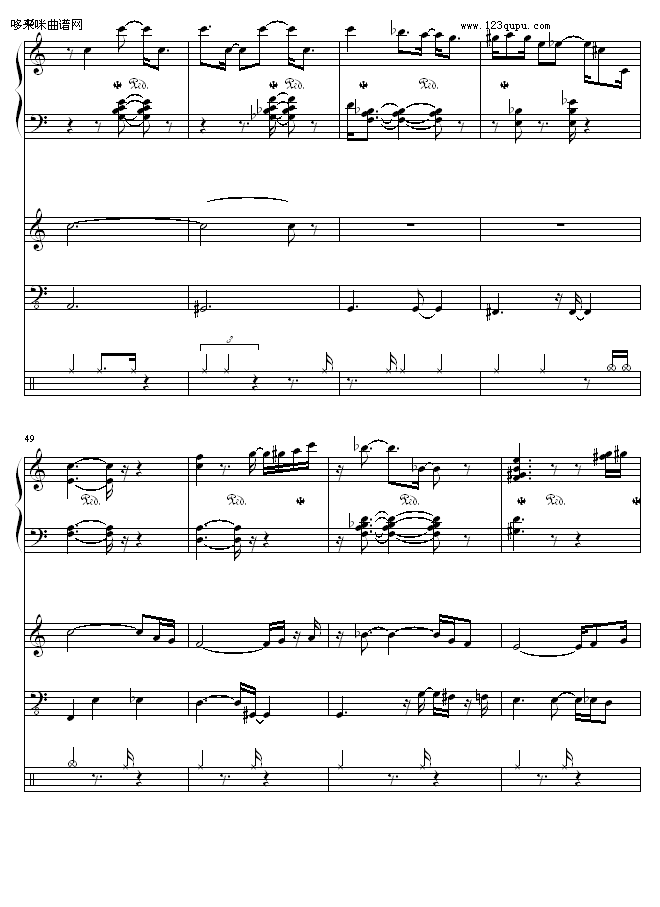 哆来咪曲谱网
www.123qupu.com
Ped.
Ped.
Ped.
3
49
Ped.
Ped.
Ped.